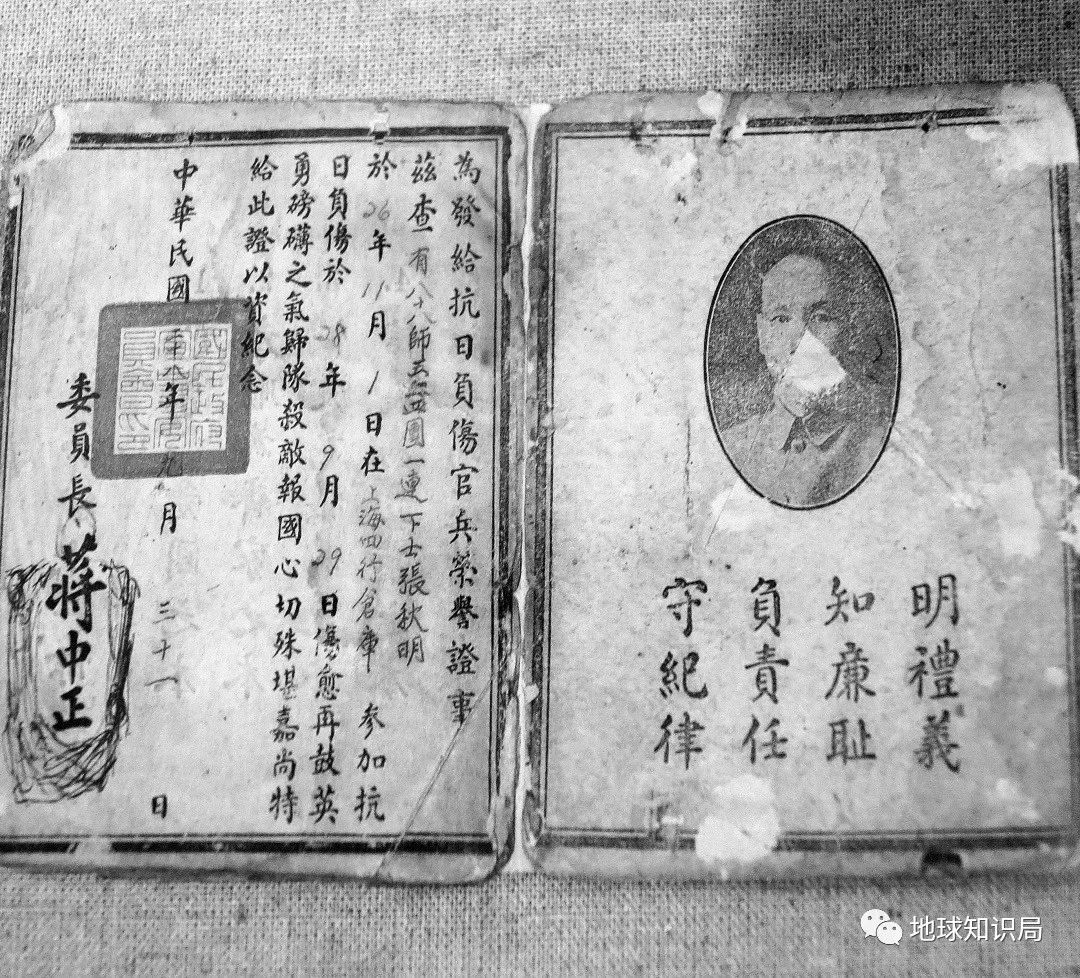 明禮義
知廉恥
負責任
守紀律
為發給抗日負傷官兵榮譽證事
茲查有八十八師五團一連下士張秋明
於26年11月1日在上海四行倉庫参加抗
日負傷於28年9月29日傷愈再鼓英
勇磅礴之氣歸隊殺敵報國心切殊堪嘉尚特
給此證以資紀念
中華民國年九月三十一日
國民政府
軍事委
員會印
委員長蔣中正
地球知识局